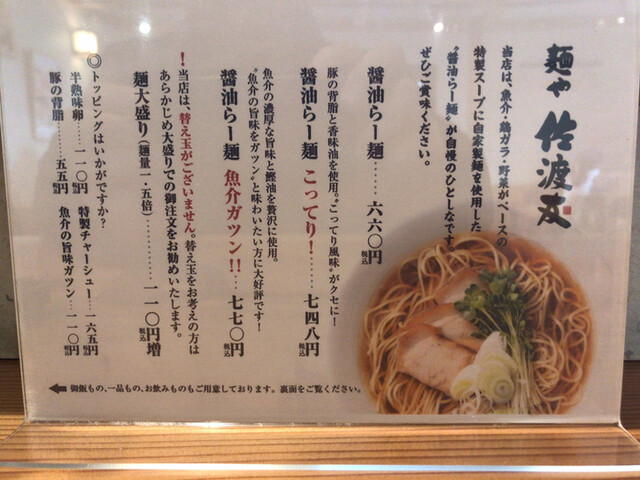 麺や 佐渡友
当店は、魚介・鶏ガラ・野菜がベースの
特製スープに自家製麺を使用した
“醤油らー麺”が自慢のひとしなです。
ぜひご賞味ください。
醤油らー麺……六六〇円税込
醤油らー麺 こってり!……七四八円税込
豚の背脂と香味油を使用。“こってり風味”がクセに!
醤油らー麺 魚介ガツン!!…七七〇円税込
魚介の濃厚な旨味と鰹油を贅沢に使用。
“魚介の旨味をガツン”と味わいたい方に大好評です!
麺大盛り(麺量一・五倍)…………一一〇円増税込
!当店は、替え玉がございません。替え玉をお考えの方は
あらかじめ大盛りでの御注文をお勧めいたします。
◎トッピングはいかがですか?
半熟味卵……一一〇円税込 特製チャーシュー…一六五円税込
豚の背脂……五五円税込 魚介の旨味ガツン…一一〇円税込
← 御飯もの、一品もの、お飲みものもご用意しております。裏面をご覧ください。